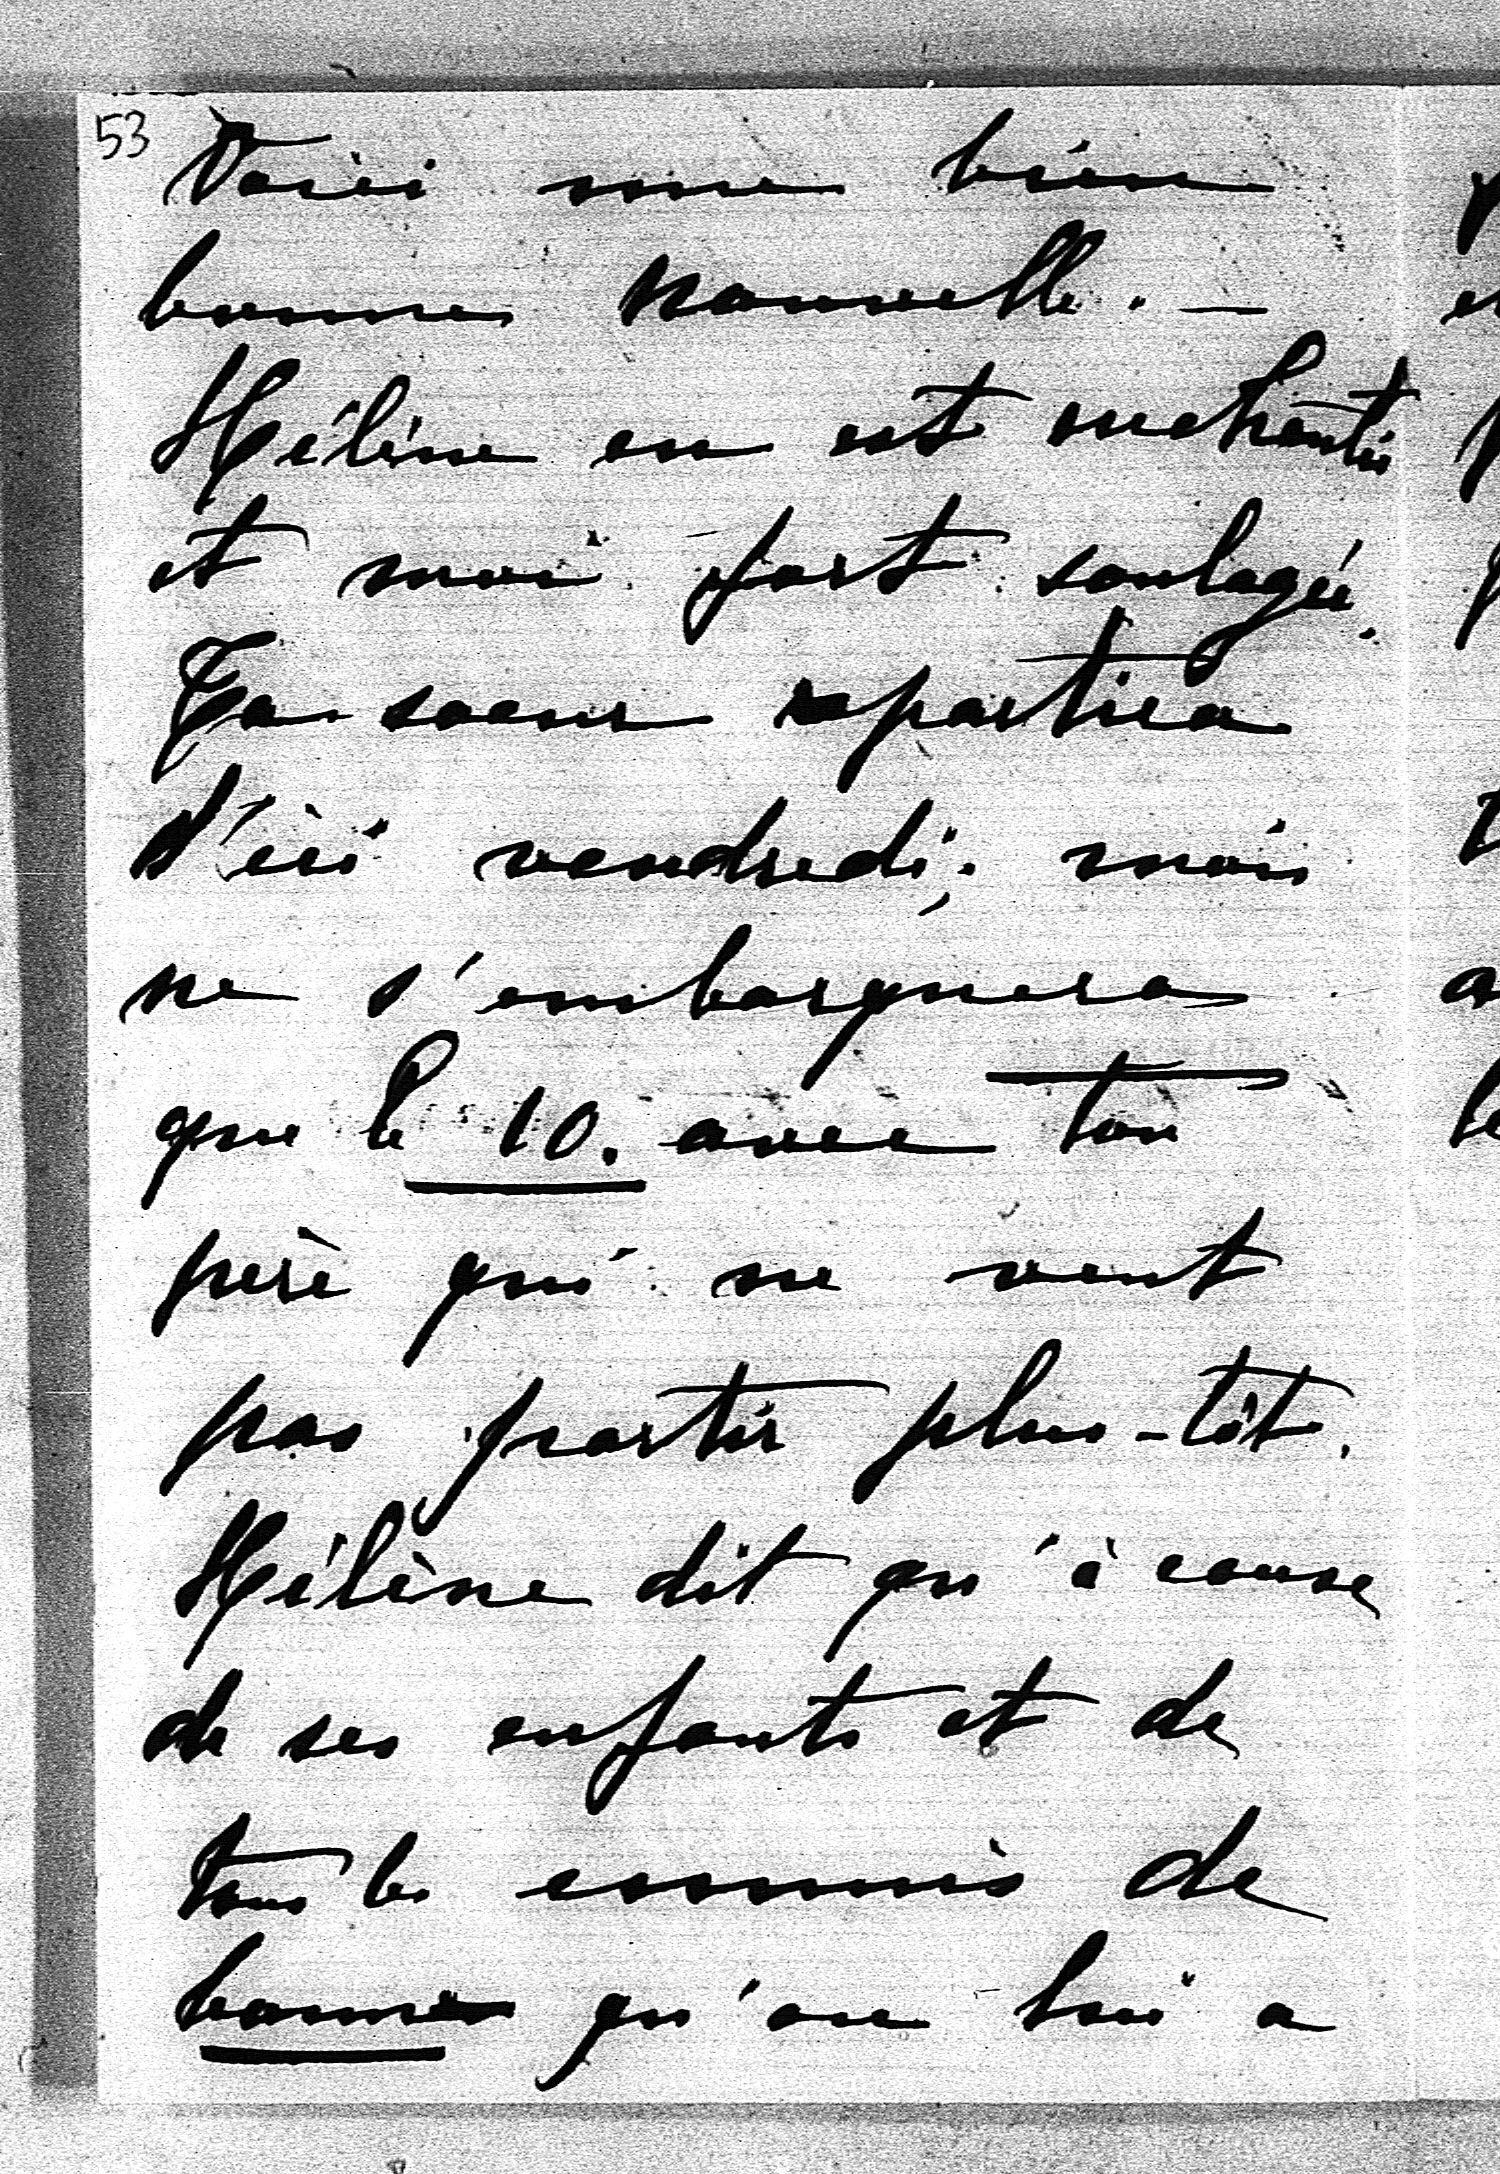 53
Voici une bien
bonne nouvelle. —
Hélène en est enchantée
et moi fort soulagée.
Ta soeur partira
d'ici vendredi; mais
ne s'embarquera
que le 10. avec ton
père qui ne veut
pas partir plus-tôt.
Hélène dit qu'à cause
de ses enfants et de
tous les ennuis de
bonnes qu'on lui a